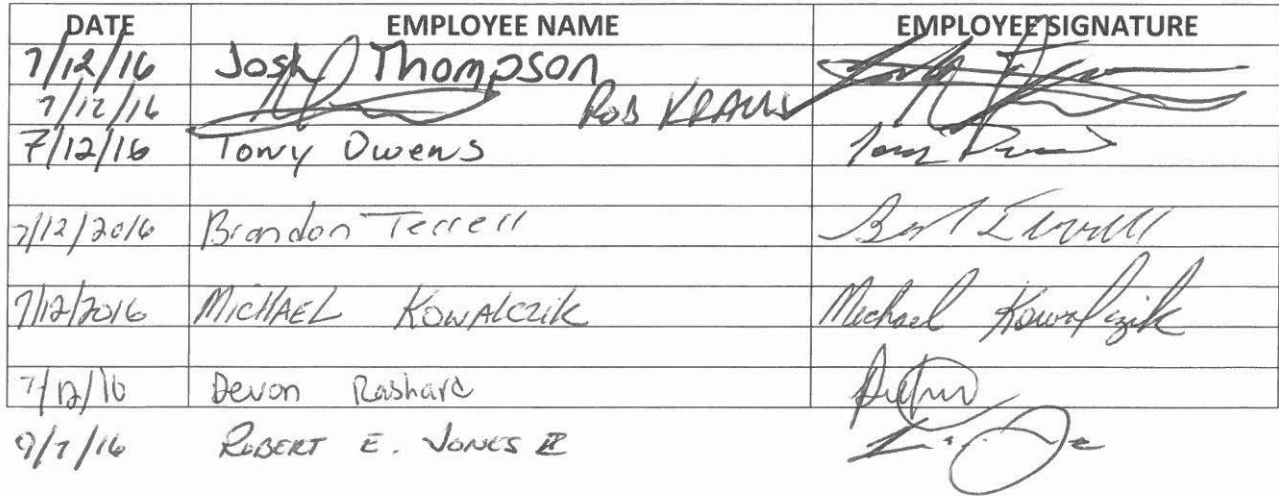 DATE EMPLOYEE NAME EMPLOYEE SIGNATURE
7/12/16 Josh Thompson
7/12/16 ROB KRAUS
7/12/16 Tony Owens Tony Owens
7/12/2016 Brandon Terrell Terrell
7/12/2016 MICHAEL KOWALCZIK Michael Kowalczik
7/12/16 Devon Rashard
9/7/16 ROBERT E. JONES II